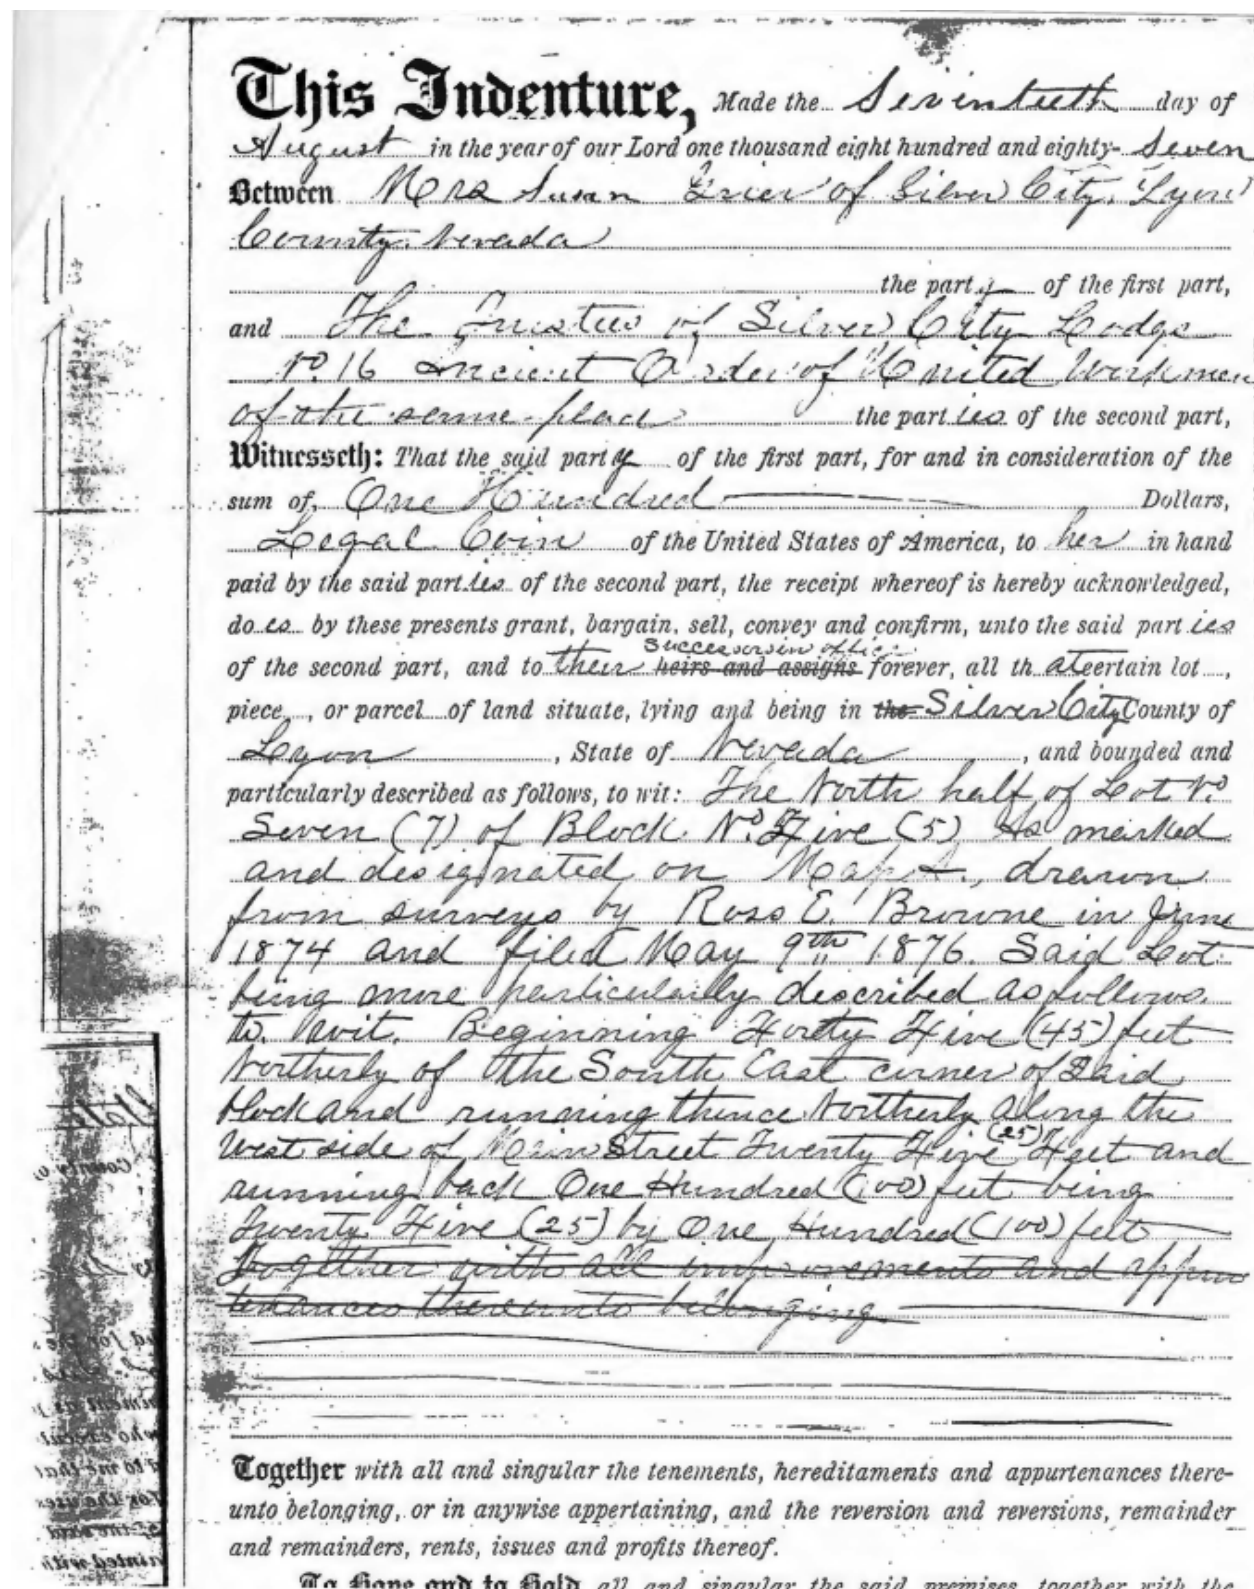 This Indenture, Made the Seventeeth day of
August in the year of our Lord one thousand eight hundred and eighty- Seven
Between Mrs Susan Grier of Silver City, Lyon
County. Nevada
the party of the first part,
and The Trustees of Silver City Lodge
No. 16 Ancient Order of United Workmen
of the same place the parties of the second part,
Witnesseth: That the said party of the first part, for and in consideration of the
sum of One Hundred Dollars,
Legal Coin of the United States of America, to her in hand
paid by the said parties of the second part, the receipt whereof is hereby acknowledged,
does by these presents grant, bargain, sell, convey and confirm, unto the said parties
successors in office
of the second part, and to their heirs and assigns forever, all that certain lot,
piece, or parcel of land situate, lying and being in the Silver City County of
Lyon, State of Nevada, and bounded and
particularly described as follows, to wit: The North half of Lot No.
Seven (7) of Block No. Five (5) As marked
and designated on Map A., drawn
from surveys by Ross E. Browne in June
1874 and filed May 9th 1876. Said Lot
being more particularly described as follows
to. wit. Beginning Forty Five (45) feet
Northerly of the South East corner of Said
block and running thence Northerly along the
West side of Main Street Twenty Five (25) Feet and
running back One Hundred (100) feet being
Twenty Five (25) by One Hundred (100) feet
Together with all improvements and appur
tenances thereunto belonging
Together with all and singular the tenements, hereditaments and appurtenances there-
unto belonging, or in anywise appertaining, and the reversion and reversions, remainder
and remainders, rents, issues and profits thereof.
To Have and to Hold, all and singular the said premises, together with the